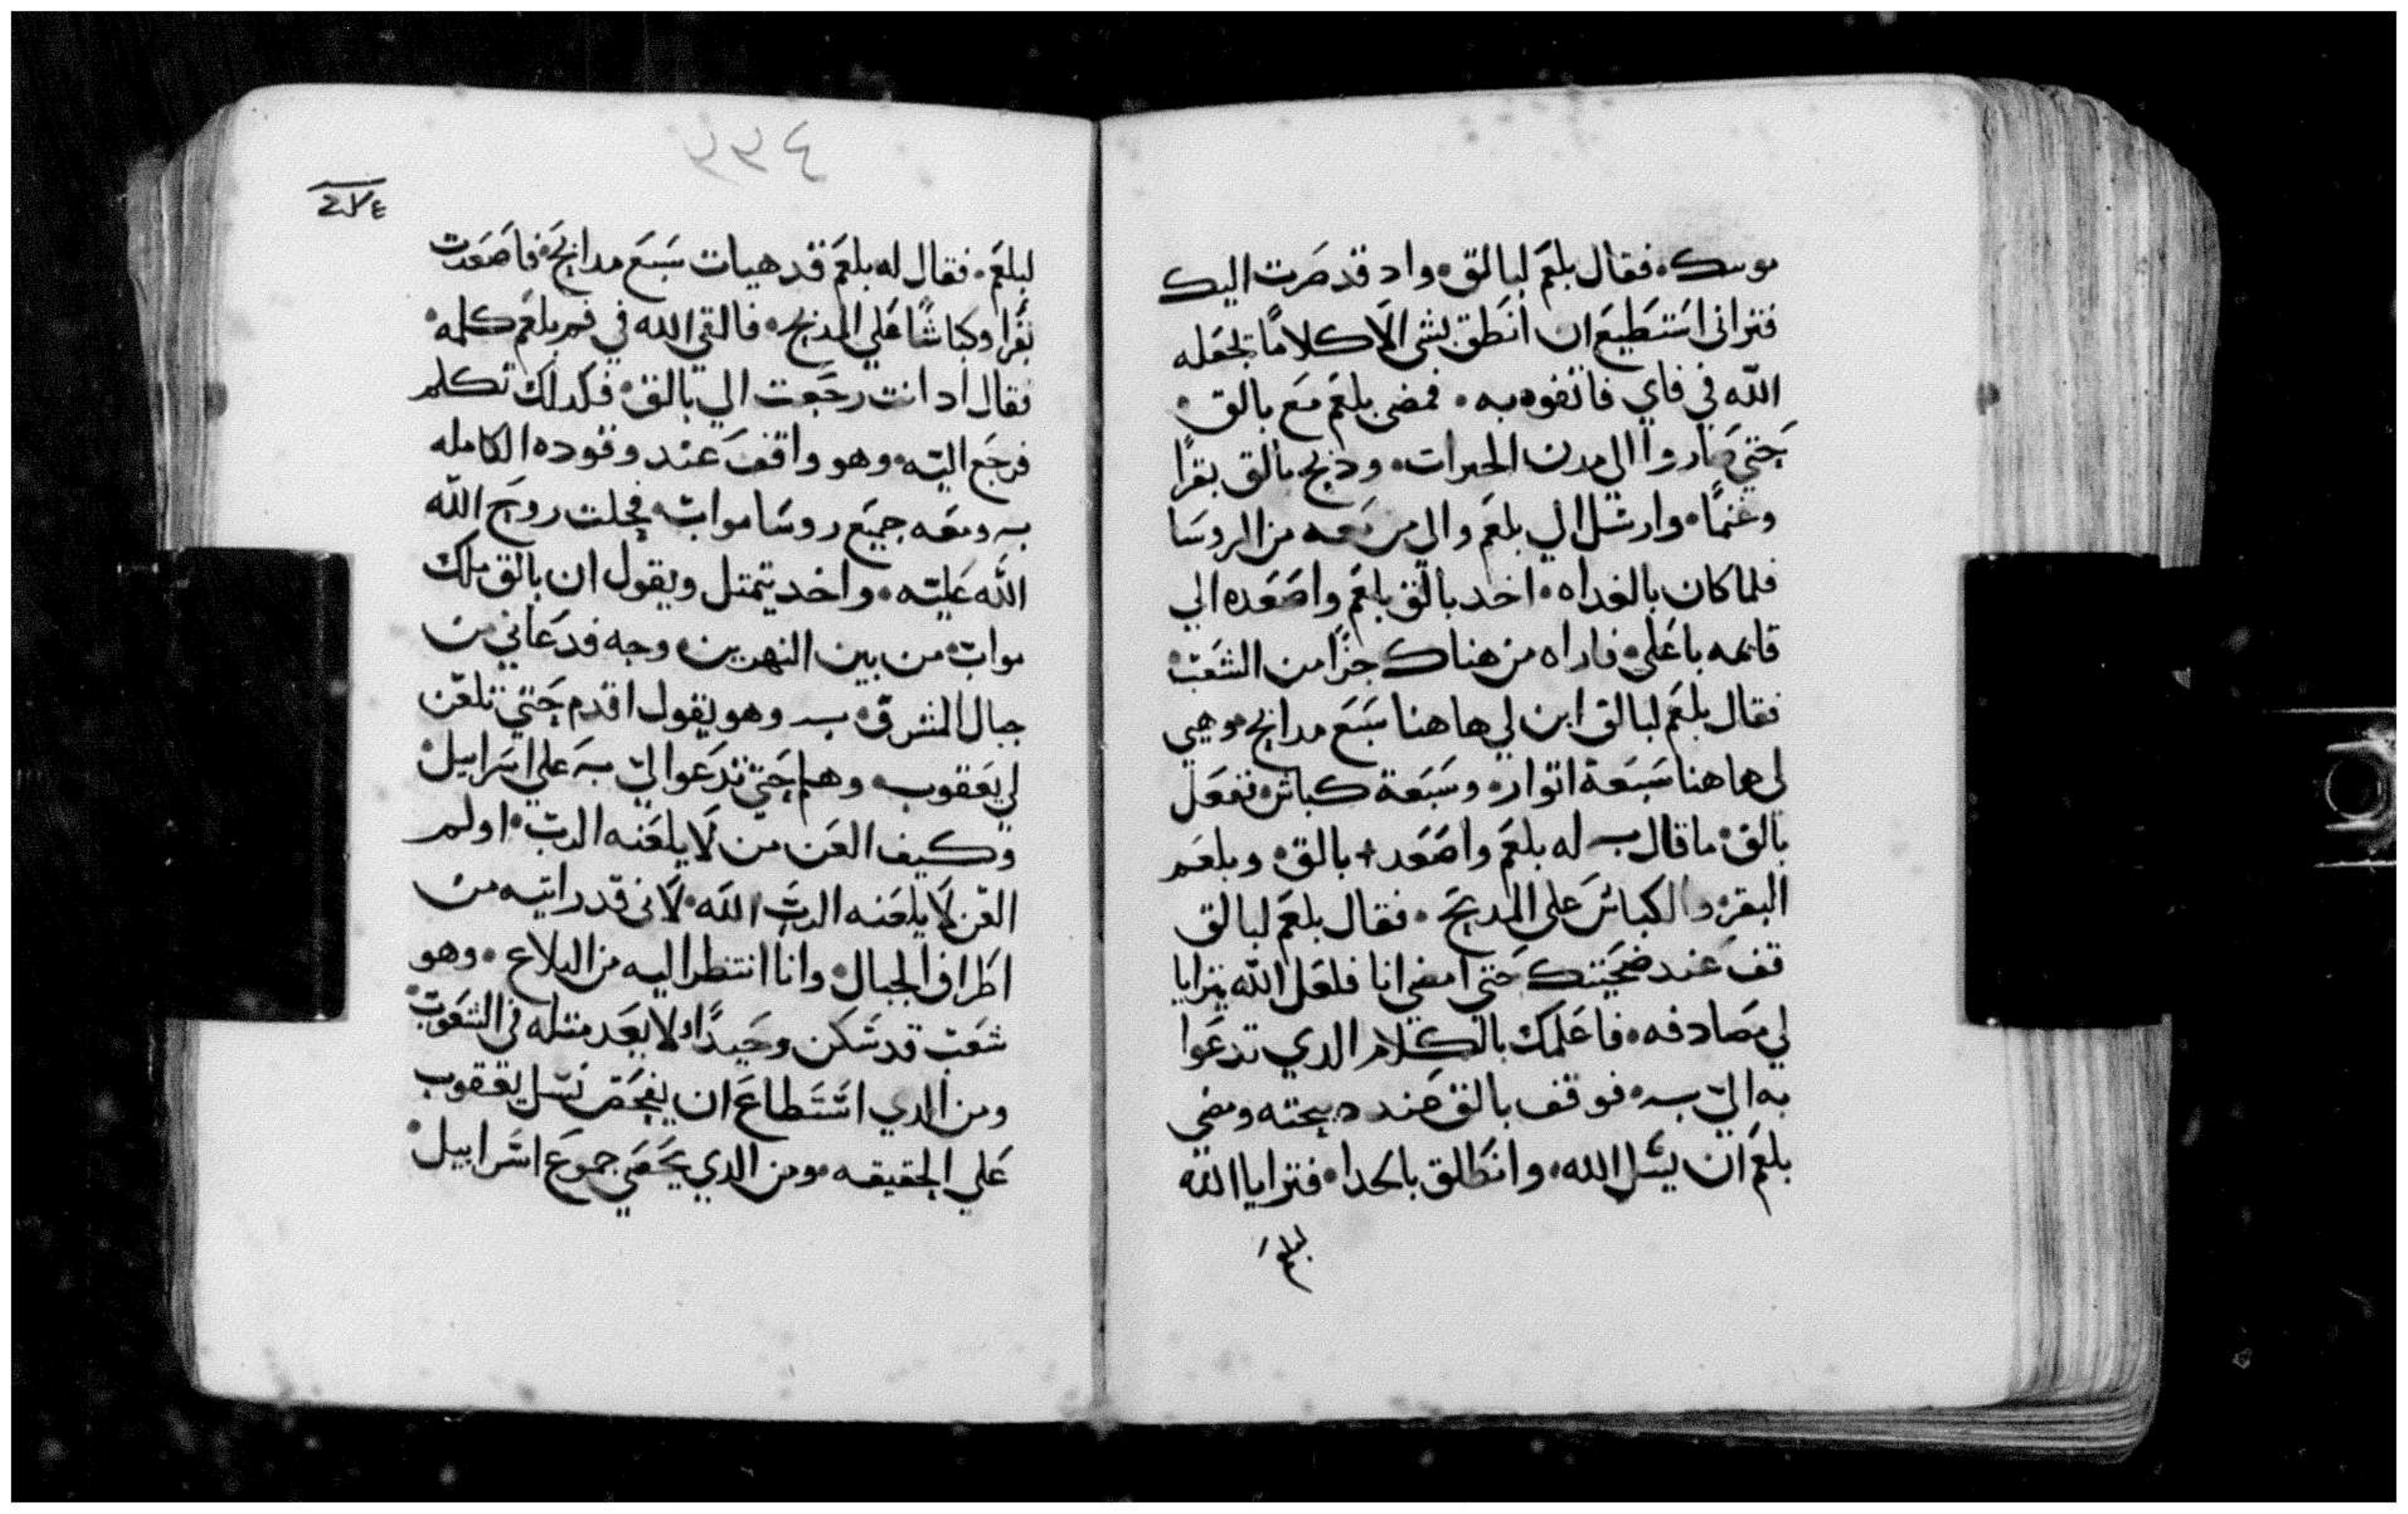 فقال بلعم لبالق واد قد صرت اليك
فتراني استطيع ان انطق بشي الا كلامًا يجعله
الله في فاي فاتفوه به فمضى بلعم مع بالق
حتي صاروا الي مدن الحيرات ودبح بالق بقرًا
وغنمًا وارسل الي بلعم والي من معه من الروسا
فلما كان بالغداه اخد بالق بلعم واصعده الي
قايمه باعلي فاراه من هناك جزًا من الشعب
فقال بلعم لبالق ابن لي هاهنا سبع مدابح وهيي
لي هاهنا سبعة اتوار وسبعة كباش ففعل
بالق ما قال له بلعم واصعد بالق وبلعم
البقر والكباش علي المدبح فقال بلعم لبالق
قف عند ضحيتك حتي امضي انا فلعل الله يترايا
لي مصادفه فاعلمك بالكلام الدي تدعوا
به الي به فوقف بالق عند دبيحته ومضي
بلعم ان يسل الله وانطلق بالحدا فترايا الله
لبلعم
٣٣٤
٢٧٤
لبلعم فقال له بلعم قد هيات سبع مدابح فاصعدت
بقرا وكباشًا علي المدبح فالقي الله في فم بلعم كلمه
فقال اد انت رجعت الي بالق فكدلك تكلم
فرجع اليه وهو واقف عند وقوده الكامله
به ومعه جميع روسا مواب فحلت روح الله
الله عليه واخد يتمتل ويقول ان بالق ملك
مواب من بين النهرين وجه فدعاني من
جبال المشرق به وهو يقول اقدم حتي تلعن
لي يعقوب وهلم حتي تدعوا لي به علي اسراييل
وكيف العن من لا يلعنه الرب او لم
العن لا يلعنه الرب الله لاني قد رايته من
اطراف الجبال وانا انتظر اليه من البلاع وهو
شعب قد سكن وحيدًا ولا يعد متله في الشعوب
ومن الدي استطاع ان يفحص نسل يعقوب
علي الحقيقه ومن الدي يحصي جموع اسراييل